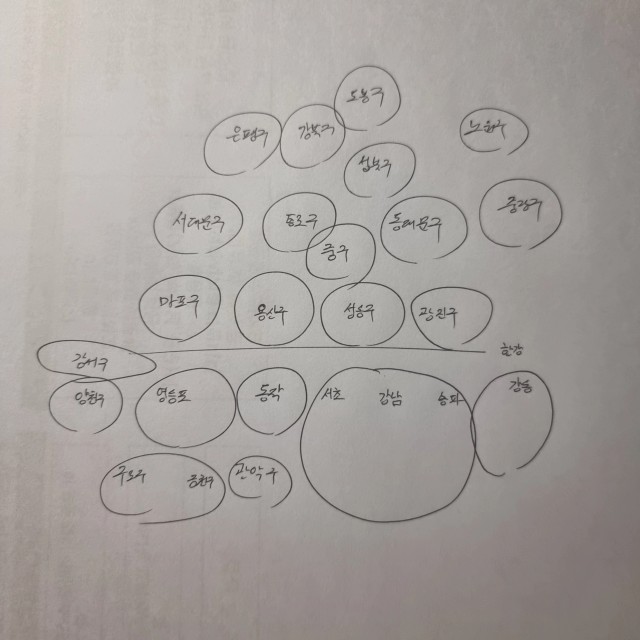 도봉구
은평구 강북구 노원구
성북구
서대문구 종로구 동대문구 중랑구
중구
마포구 용산구 성동구 광진구
한강
강서구
양천구 영등포 동작 서초 강남 송파 강동
구로구 금천구 관악구